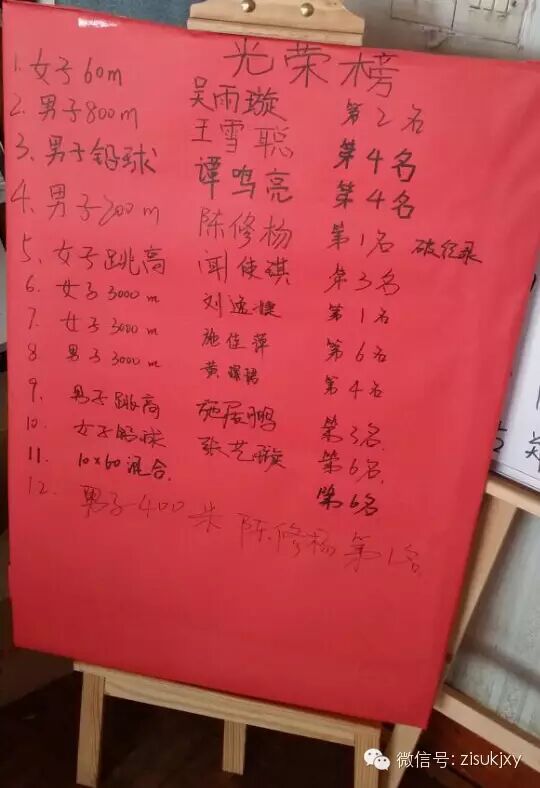 光荣榜
1. 女子60m 吴雨璇 第2名
2. 男子800m 王雪聪 第4名
3. 男子铅球 谭鸣亮 第4名
4. 男子200m 陈修杨 第1名 破纪录
5. 女子跳高 使祺 第3名
6. 女子3000m 刘逸捷 第1名
7. 女子3000m 施佳萍 第6名
8 男子3000m 黄 第4名
9. 男子跳高 施展鹏 第3名.
10. 女子铅球 张艺璇 第6名.
11. 10×60混合. 第6名
12. 男子400米 陈修杨 第1名
微信号: zisukjxy